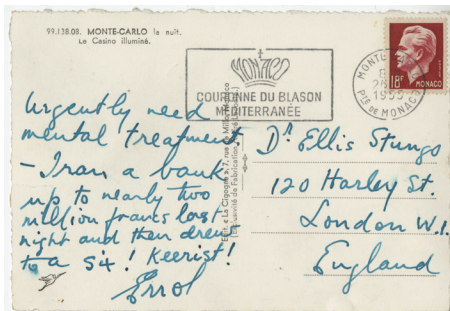 99.138.08. MONTE-CARLO la nuit.
Le Casino illuminé.
MONACO
COURONNE DU BLASON
MÉDITERRANÉE
MONTE
Pté DE MONACO
18F
MONACO
Urgently need
mental treatment
– I ran a bank
up to nearly two
million franks last
night and then drew
to a S4! Keerist!
Errol
Edit. « La Cigogne », 7, rue de Millo, Monaco
Exclusivité de Fabrication
Dr Ellis Stungo
120 Harley St.
London W.1.
England